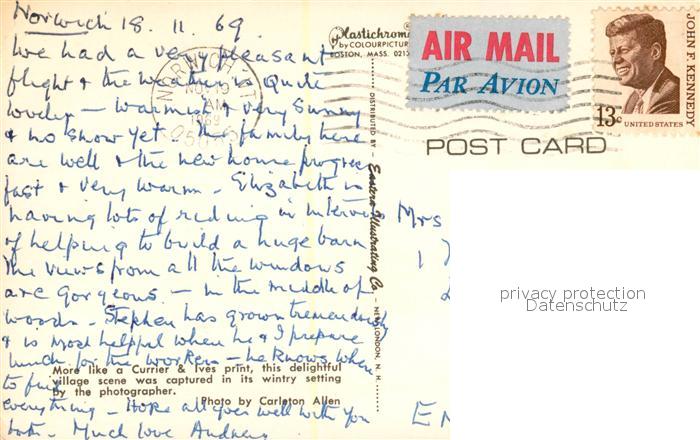 Norwich 18. 11. 69.
We had a very pleasant
flight & the weather is quite
lovely - warmish & very sunny
& no snow yet. The family here
are well & the new home progres
fast & very warm. Elizabeth is
having lots of riding in
of helping to build a huge barn
The views from all the windows
are gorgeous - in the middle of
woods. Stephen has grown tremendously
& is most helpful when he & I prepare
lunch for the workers - he knows where
to find
everything - Hope all goes well with you
both. Much love
More like a Currier & Ives print, this delightful
village scene was captured in its wintry setting
by the photographer.
Photo by Carleton Allen
Plastichrome
by COLOURPICTUR
BOSTON, MASS. 0213
DISTRIBUTED BY Eastern Illustrating Co. NEW LONDON, N. H.
NOV 19
AM
1969
AIR MAIL
PAR AVION
JOHN F. KENNEDY
13c
UNITED STATES
POST CARD
Mrs
privacy protection
Datenschutz